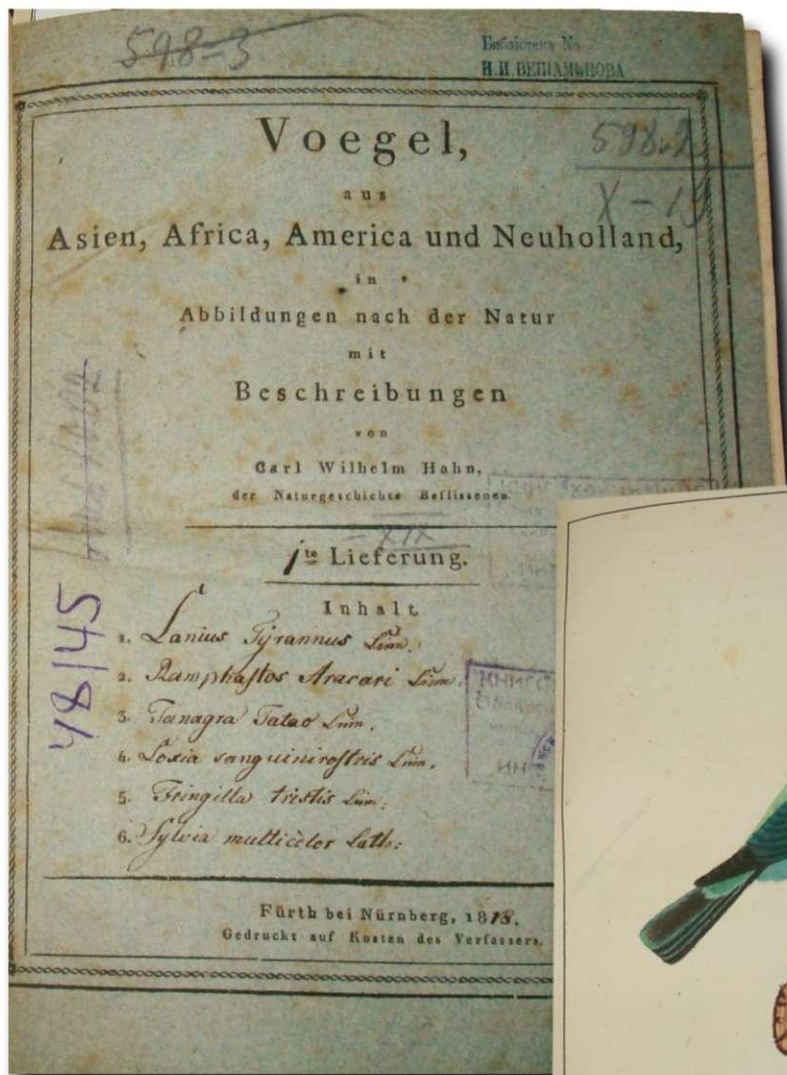 598-3
Библиотека №
И.И.ВЕНІАМИНОВА
Voegel,
598.2
X-19
aus
Asien, Africa, America und Neuholland,
in
Abbildungen nach der Natur
mit
Beschreibungen
von
Carl Wilhelm Hahn,
der Naturgeschichte Beflissenen
XIX
1te Lieferung.
Inhalt
48/45
1. Lanius Tyrannus Linn.
2. Ramphastos Aracari Linn.
3. Tanagra Tatao Linn.
4. Loxia sanguinirostris Linn.
5. Fringilla tristis Linn:
6. Sylvia multicolor Lath:
Fürth bei Nürnberg, 1818.
Gedruckt auf Kosten des Verfassers.